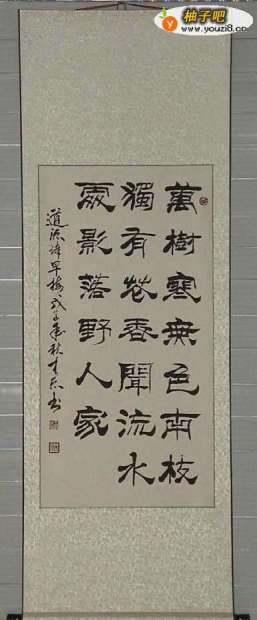 柚子吧
www.youzi8.cn
萬樹寒無色南枝
獨有花香聞流水
處影落野人家
道源詩早梅戊子年秋
書